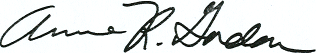 Anne R. Gordon